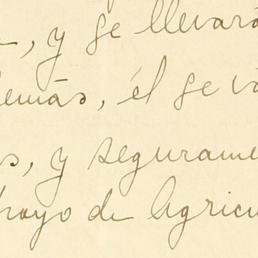 , y se llevará
demás, él se v
s, y segurame
poyo de Agricu